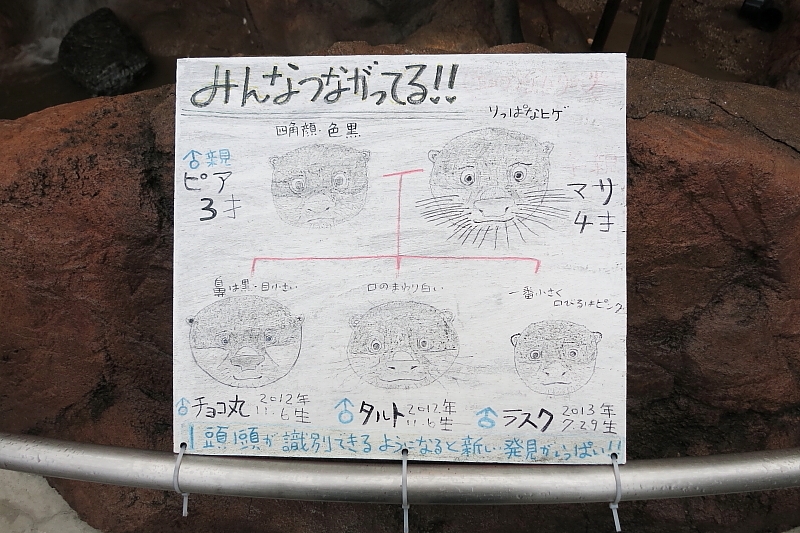 みんなつながってる!!
りっぱなヒゲ
四角顔・色黒
ピア
3才
マサ
4才
鼻は黒・目小さい
口のまわり白い
一番小さく
口びるはピンク
♂チョコ丸 2012年
11.6生
♂タルト 2012年
11.6生
♂ラスク 2013年
7.29生
1頭1頭が識別できるようになると新しい発見がいっぱい!!